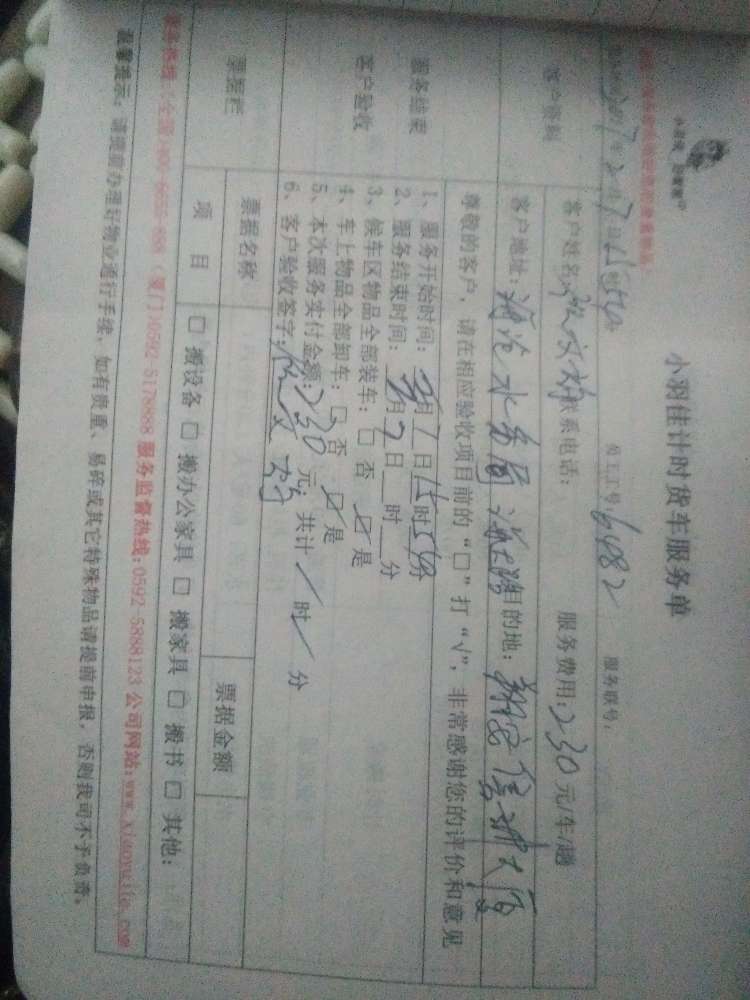 小羽佳计时货车服务单
员工工号：6482 服务联号：
客户资料
客户姓名： 联系电话： 服务费用：230元/车/趟
客户地址：海沧水务局 目的地：翔安 大厦
尊敬的客户，请在相应验收项目前的“□”打“√”，非常感谢您的评价和意见
服务结束
客户验收
1、服务开始时间： 月7日15时 分
2、服务结束时间： 月7日 时 分
3、候车区物品全部装车：□ 否 ☑ 是
4、车上物品全部卸车：□ 否 ☑ 是
5、本次服务实付金额：230元；共计 / 时 / 分
6、客户验收签字：
票据栏
票据名称 票据金额
项 目 □ 搬设备 □ 搬办公家具 □ 搬家具 □ 搬书 □ 其他：
服务监督热线：0592-5888123 公司网站：www.xiaoyujia.com
温馨提示：请提前办理好物业通行手续，如有贵重、易碎或其它特殊物品请提前申报，否则我司不予负责。